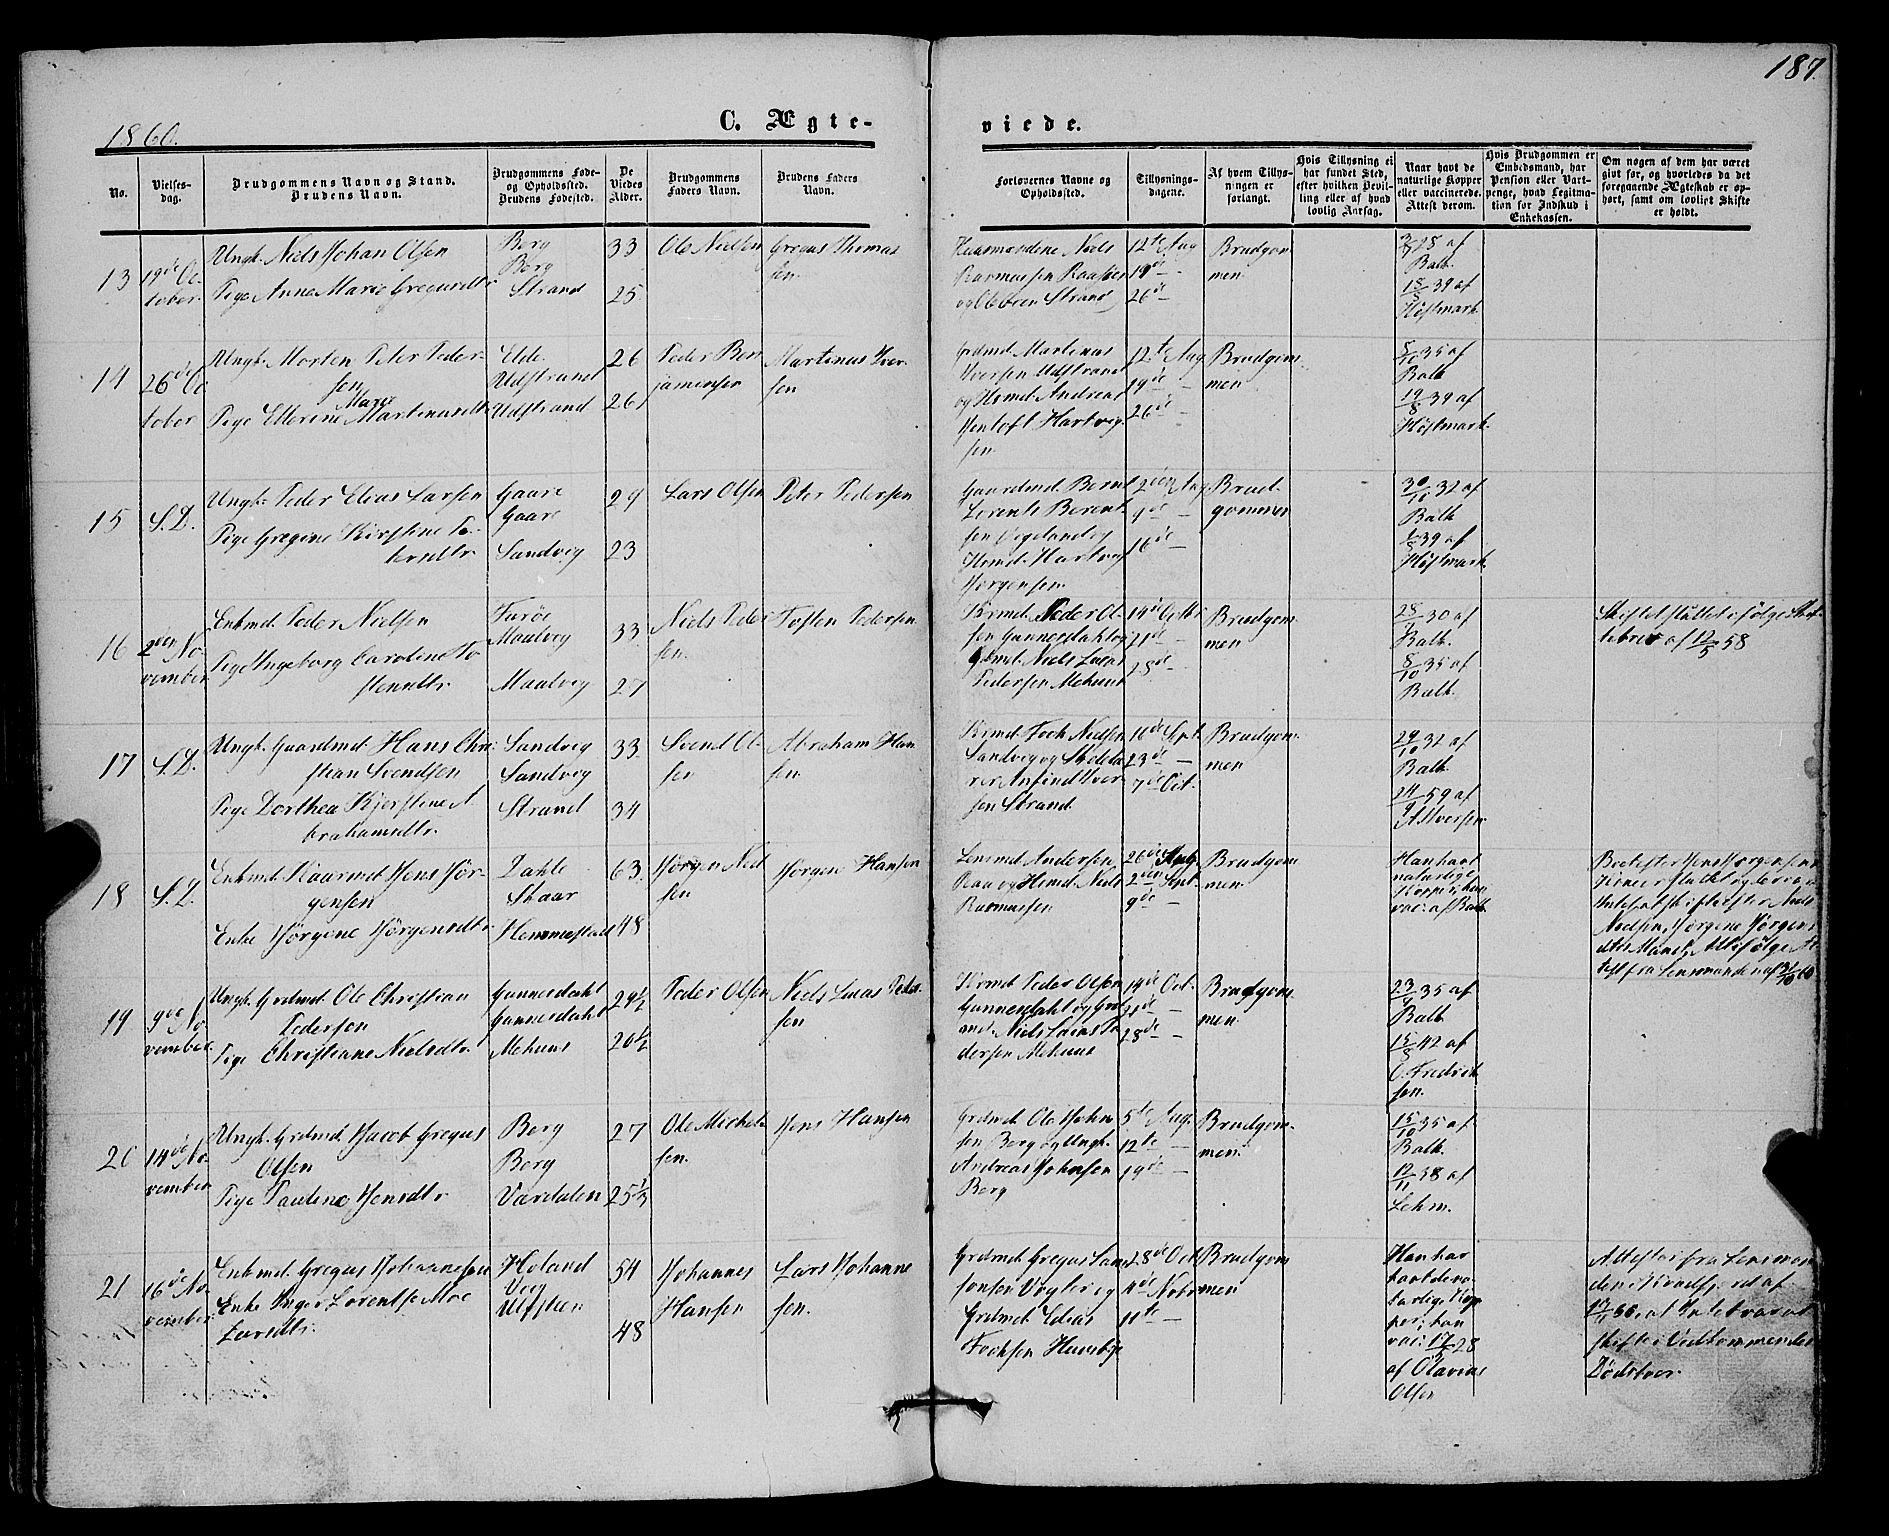 187.
1860.
C. Ægte-
viede.
No.
Vielses-
dag.
Brudgommens Navn og Stand.
Brudens Navn.
Brudgommens Føde-
og Opholdssted.
Brudens Fødested.
De
Viedes
Alder.
Brudgommens
Faders Navn.
Brudens Faders
Navn.
Forlovernes Navne og
Opholdssted.
Tillysnings-
dagene.
Af hvem Tillys-
ningen er
forlangt.
Hvis Tillysning ei
har fundet Sted,
efter hvilken Bevil-
ling eller af hvad
lovlig Aarsag.
Naar havt de
naturlige Kopper
eller vaccinerede.
Attest derom.
Hvis Brudgommen er
Embedsmand, har
Pension eller Vart-
penge, hvad Legitma-
tion for Indskud i
Enkekassen.
Om nogen af dem har været
givt før, og hvorledes da det
foregaaende Ægteskab er op-
hørt, samt om lovligt Skifte
er holdt.
13
19de Oc-
tober.
Ungk. Niels Johan Olsen
Pige Anne Marie Gregusdtr
Berg
Berg
Strand
33
25
Ole Nielsen
Gregus Thomas
sen.
Huusmændene Niels
Rasmussen
og Ole Strand
12te Aug
19de —
26de —
Brudgom
men
25 af
Balk.
18/8 39 af
Høstmark
14
26de Oc
tober
Ungk. Morten Peter Peder-
sen
Pige Ellerine Marie Martinusdtr.
Eide.
Udstrand
Udstrand
26
26
Peder Ben
jaminsen
Martinus Iver
sen
Grdmd. Martinus
Iversen Udstrand
og Hmd. Andreas
Hartvig-
sen.
12te Aug
19de —
26de —
Brudgom
men
8/10 35 af
Balk
19/8 39 af
Høstmark.
15
S.D.
Ungk. Peder Elias Larsen
Pige Gregine Kirstine Pe-
tersdtr.
Gaare
Gaare
Sandvig
29
23
Lars Olsen
Peter Pedersen
Gaardmd. Bernt
Lorents Berent-
sen
Hmd. Hartvig
Jørgensen.
2den Aug
9de —
16de —
Brud-
gommen
30/10 32 af
Balk
39 af
Høstmark
16
2den No
vember
Enkmd. Peder Nielsen
Pige Ingeborg Caroline To
stensdtr.
Furøe
Maalvig
Maalvig
33
27
Niels Peder
sen.
Tosten Pedersen
Peder Ol-
sen Gunnersdahl og
Grdmd. Niels Lucas
Pedersen Mehuus
14de Octbr.
21de —
28de —
Brudgom
men
28/7 30 af
Balk.
8/10 35 af
Balk.
Skiftet sluttet ifølge Skif-
tebrev af 12/5 58
17
S.D.
Ungk. Gaardmd. Hans Chri-
stian Svendsen
Pige Dorthea Kjerstine A
brahamsdtr.
Sandvig
Sandvig
Strand
33
34
Svend Ol-
sen
Abraham Han
sen.
Fock Nielsen
Sandvig og Skolelæ-
rer Arfind Iver-
sen Strand
16de Spt.
23de —
7de Oct.
Brudgom-
men
29/10 32 af
Balk.
24/9 59 af
A. Iversen
18
S.D.
Enkmd. Kaarmd. Jens Jør-
gensen
Enke Jørgine Jørgensdtr.
Dahle
Skaar
Hemmestad
63
48
Jørgen Niel
sen
Jørgen Hansen
Lensmd. Andersen
Raa og Hmd. Niels
Rasmussen
26de Aug.
2den Sept.
9de —
Brudgom
men.
Han havt
naturlige
Kopper, hun
vac: af Balk
Nielsen, Jørgine Jørgens
dtrs Mand, Alt ifølge At
test fra Lensmanden af 31/10 60
19
9de No
vember.
Ungk. Grdmd. Ole Christian
Pedersen
Pige Christiane Nielsdtr.
Gunnersdahl
Gunnersdahl
Mehuus
24½
20½
Peder Olsen
Niels Lucas Peder-
sen
Peder Olsen
Gunnersdahl og Grd
md. Niels Lucas Pe
dersen Mehuus
14de Oct.
21de —
28de —
Brudgom
men.
23/9 35 af
Balk
15/8 42 af
O. Fredrik
sen.
20
14de No-
vember
Ungk. Grdmd. Jacob Gregus
Olsen
Pige Pauline Jensdtr.
Berg
Berg
Vardalen
27
25⅓
Ole Mechel-
sen.
Jens Hansen
Grdmd. Ole John
sen Berg og Ungk.
Andreas Johnsen
Berg
5te Aug.
12te —
19de —
Brudgom-
men.
15/10 35 af
Balk.
12/11 38 af
Lehm.
21
16de No-
vember.
Enkmd. Gregus Johannesen
Enke Inger Lorentse Moe
Larsdtr.
Holand
Vig
Ulfsteen
54
48
Johannes
Hansen
Lars Johanne
sen.
Grdmd. Gregus
og
Grdmd. Elias
Focksen
28de Oct
4de Novbr
11te —
Brudgom
men
Han har
havt de na-
turlige Kop
per; hun
vac: 17/5 28
af Olavius
Olsen
Attester fra Lensman
den i af
at Intet var at
skifte i Vedkommendes
Dødsboer.